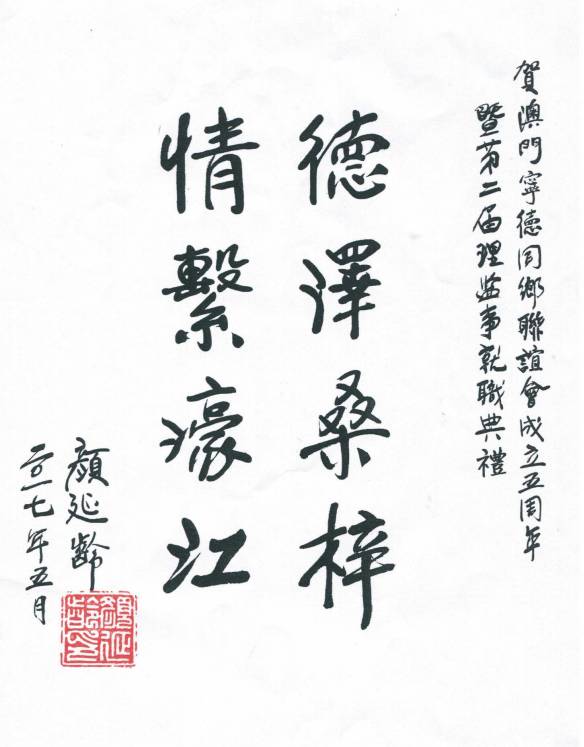 賀澳門寧德同鄉聯誼會成立五周年
暨第二届理監事就職典禮
德澤桑梓
情繫濠江
顏延齡
二〇一七年五月